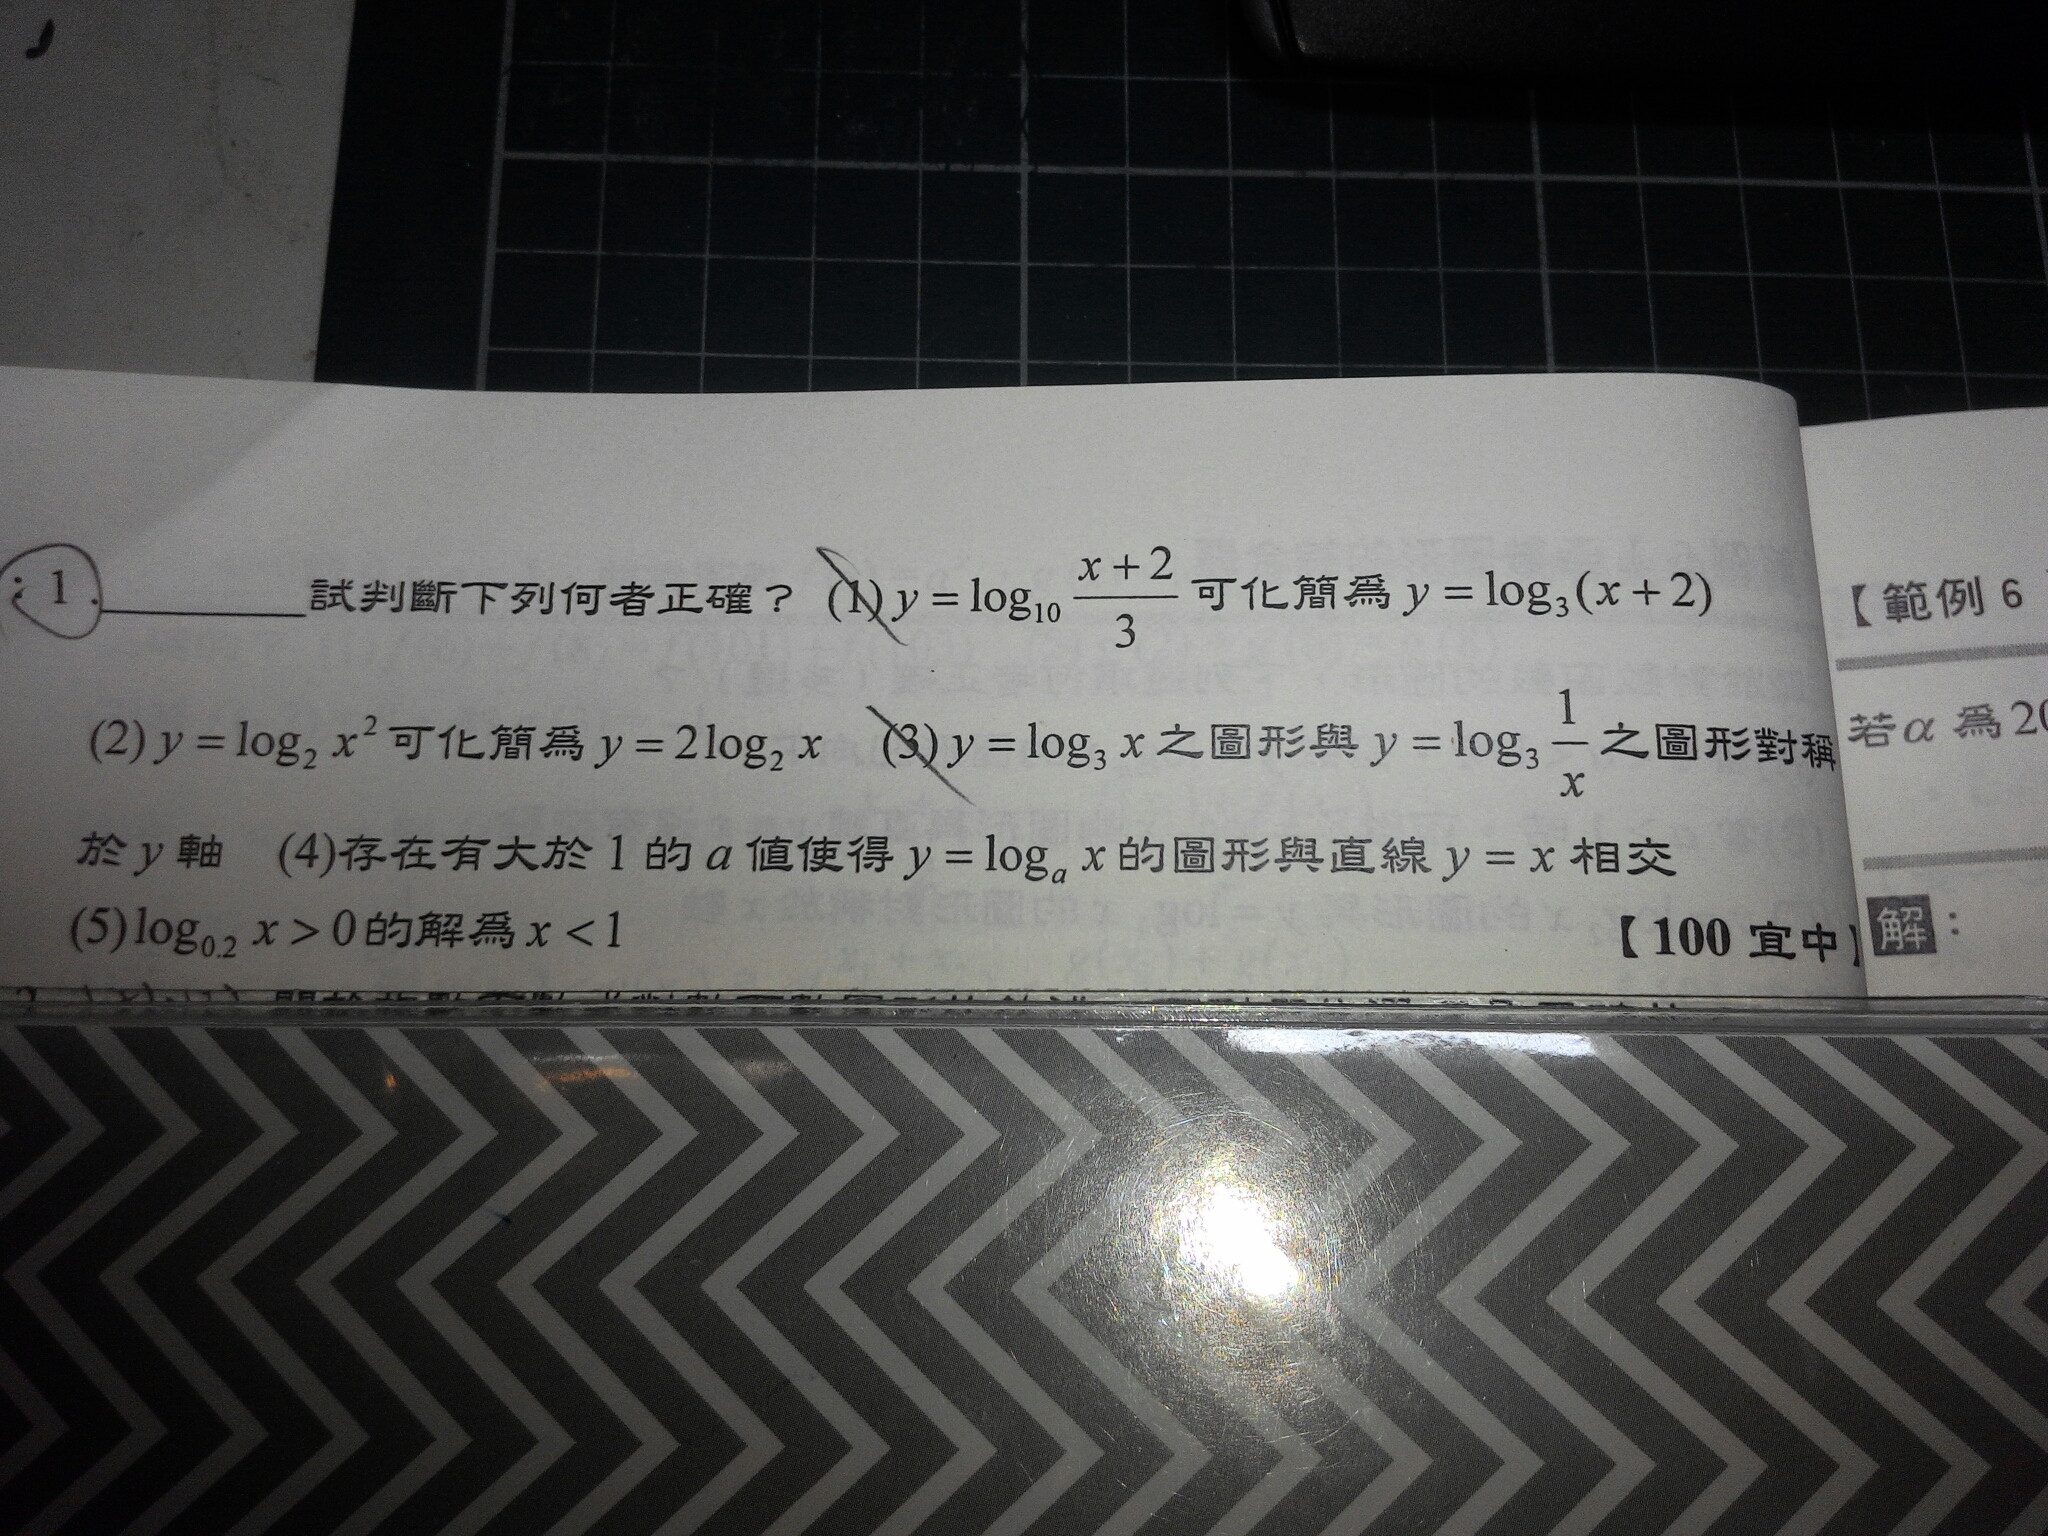 1. ________試判斷下列何者正確？ (1) y = log₁₀ (x+2)/3 可化簡爲 y = log₃(x+2)
(2) y = log₂ x² 可化簡爲 y = 2log₂ x (3) y = log₃ x 之圖形與 y = log₃ 1/x 之圖形對稱
於 y 軸 (4)存在有大於 1 的 a 值使得 y = logₐ x 的圖形與直線 y = x 相交
(5) log₀.₂ x > 0 的解爲 x < 1 【100 宜中】
【範例 6
若 α 爲 20
解：